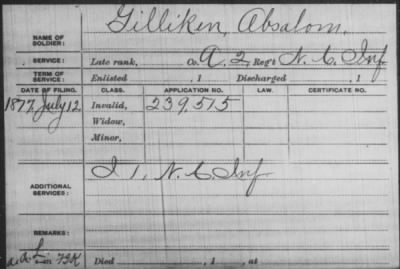 Gilliken, Absalom.
NAME OF SOLDIER:
SERVICE: Late rank, Co. A, 2 Reg't N. C. Inf
TERM OF SERVICE: Enlisted , 1 Discharged , 1
DATE OF FILING. CLASS. APPLICATION NO. LAW. CERTIFICATE NO.
1877, July 12 Invalid, 239,515
Widow,
Minor,
ADDITIONAL SERVICES: I 1, N. C. Inf
REMARKS:
Died , 1 , at